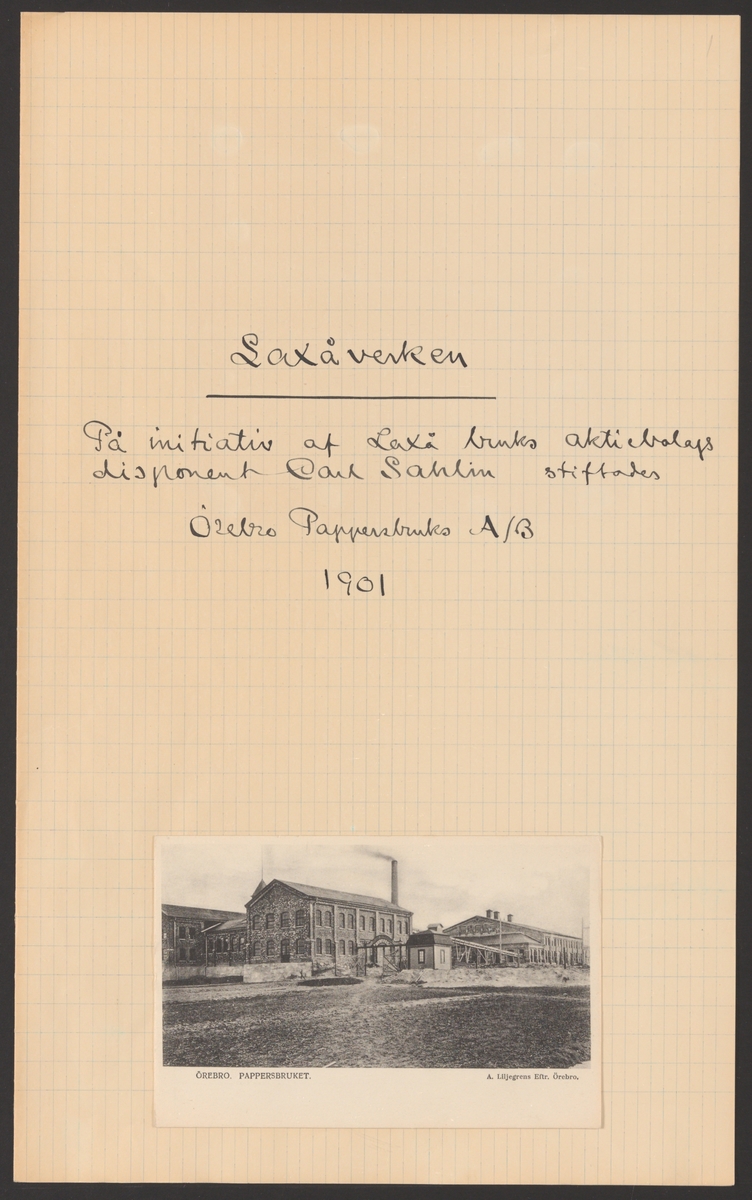 Laxåverken
På initiativ af Laxå bruks aktiebolags
disponent Carl Sahlin stiftades
Örebro Pappersbruks A/B
1901
ÖREBRO. PAPPERSBRUKET.
A. Liljegrens Eftr. Örebro.